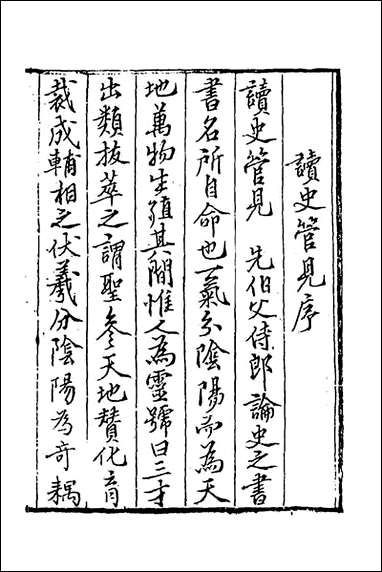 讀史管見序
讀史管見 先伯父侍郎論史之書
書名所自命也一氣分陰陽而為天
地萬物生殖其間惟人為靈號曰三才
出類拔萃之謂聖參天地贊化育
裁成輔相之伏羲分陰陽為奇耦